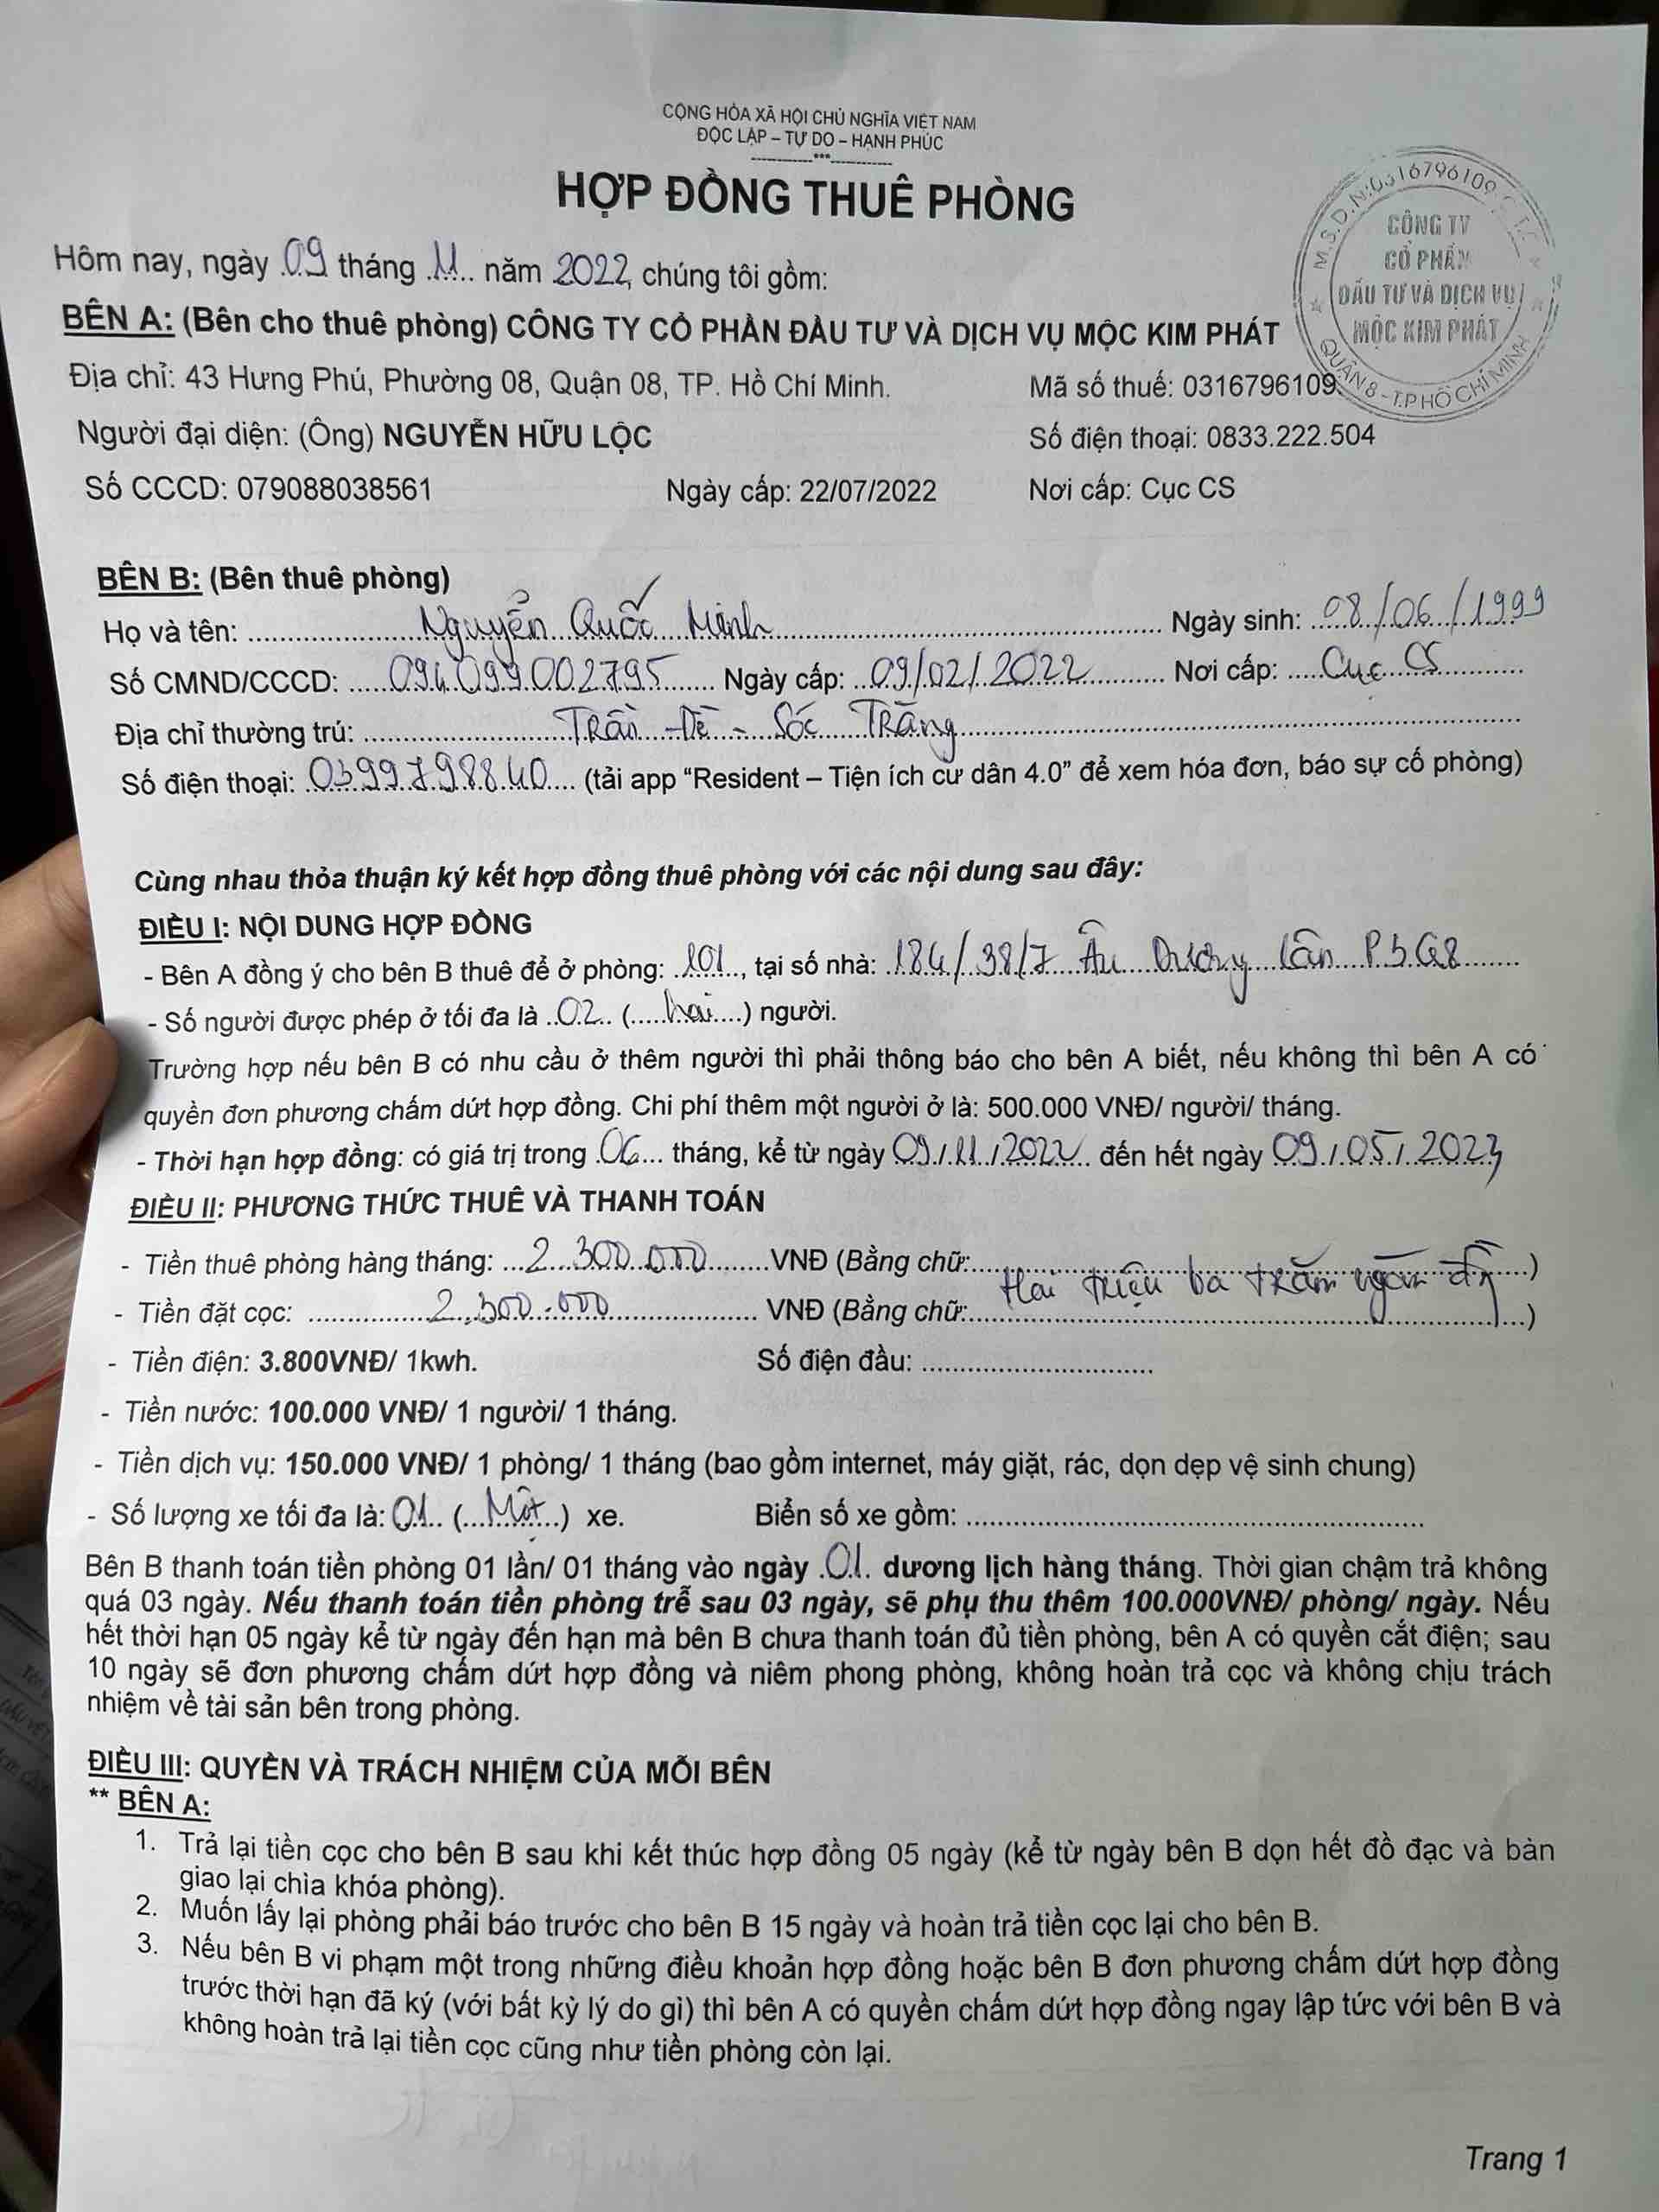 CỘNG HÒA XÃ HỘI CHỦ NGHĨA VIỆT NAM
ĐỘC LẬP – TỰ DO – HẠNH PHÚC
***
HỢP ĐỒNG THUÊ PHÒNG
M.S.D.N:0316796109
CÔNG TY
CỔ PHẦN
ĐẦU TƯ VÀ DỊCH VỤ
MỘC KIM PHÁT
QUẬN 8 - T.P HỒ CHÍ MINH
Hôm nay, ngày 09 tháng 11 năm 2022, chúng tôi gồm:
BÊN A: (Bên cho thuê phòng) CÔNG TY CỔ PHẦN ĐẦU TƯ VÀ DỊCH VỤ MỘC KIM PHÁT
Địa chỉ: 43 Hưng Phú, Phường 08, Quận 08, TP. Hồ Chí Minh. Mã số thuế: 0316796109.
Người đại diện: (Ông) NGUYỄN HỮU LỘC Số điện thoại: 0833.222.504
Số CCCD: 079088038561 Ngày cấp: 22/07/2022 Nơi cấp: Cục CS
BÊN B: (Bên thuê phòng)
Họ và tên: Nguyễn Quốc Minh Ngày sinh: 08/06/1999
Số CMND/CCCD: 094099002795 Ngày cấp: 09/02/2022 Nơi cấp: Cục CS
Địa chỉ thường trú: Trần - Đề - Sóc Trăng
Số điện thoại: 0399798840 (tải app “Resident – Tiện ích cư dân 4.0” để xem hóa đơn, báo sự cố phòng)
Cùng nhau thỏa thuận ký kết hợp đồng thuê phòng với các nội dung sau đây:
ĐIỀU I: NỘI DUNG HỢP ĐỒNG
- Bên A đồng ý cho bên B thuê để ở phòng: 101, tại số nhà: 184/38/7 Âu Dương Lân P3 Q8
- Số người được phép ở tối đa là 02 (hai) người.
Trường hợp nếu bên B có nhu cầu ở thêm người thì phải thông báo cho bên A biết, nếu không thì bên A có
quyền đơn phương chấm dứt hợp đồng. Chi phí thêm một người ở là: 500.000 VNĐ/ người/ tháng.
- Thời hạn hợp đồng: có giá trị trong 06 tháng, kể từ ngày 09/11/2022 đến hết ngày 09/05/2023
ĐIỀU II: PHƯƠNG THỨC THUÊ VÀ THANH TOÁN
- Tiền thuê phòng hàng tháng: 2.300.000 VNĐ (Bằng chữ: Hai triệu ba trăm ngàn đồng)
- Tiền đặt cọc: 2.300.000 VNĐ (Bằng chữ: )
- Tiền điện: 3.800VNĐ/ 1kwh. Số điện đầu:
- Tiền nước: 100.000 VNĐ/ 1 người/ 1 tháng.
- Tiền dịch vụ: 150.000 VNĐ/ 1 phòng/ 1 tháng (bao gồm internet, máy giặt, rác, dọn dẹp vệ sinh chung)
- Số lượng xe tối đa là: 01 (Một) xe. Biển số xe gồm:
Bên B thanh toán tiền phòng 01 lần/ 01 tháng vào ngày 01 dương lịch hàng tháng. Thời gian chậm trả không
quá 03 ngày. Nếu thanh toán tiền phòng trễ sau 03 ngày, sẽ phụ thu thêm 100.000VNĐ/ phòng/ ngày. Nếu
hết thời hạn 05 ngày kể từ ngày đến hạn mà bên B chưa thanh toán đủ tiền phòng, bên A có quyền cắt điện; sau
10 ngày sẽ đơn phương chấm dứt hợp đồng và niêm phong phòng, không hoàn trả cọc và không chịu trách
nhiệm về tài sản bên trong phòng.
ĐIỀU III: QUYỀN VÀ TRÁCH NHIỆM CỦA MỖI BÊN
** BÊN A:
1. Trả lại tiền cọc cho bên B sau khi kết thúc hợp đồng 05 ngày (kể từ ngày bên B dọn hết đồ đạc và bàn
giao lại chìa khóa phòng).
2. Muốn lấy lại phòng phải báo trước cho bên B 15 ngày và hoàn trả tiền cọc lại cho bên B.
3. Nếu bên B vi phạm một trong những điều khoản hợp đồng hoặc bên B đơn phương chấm dứt hợp đồng
trước thời hạn đã ký (với bất kỳ lý do gì) thì bên A có quyền chấm dứt hợp đồng ngay lập tức với bên B và
không hoàn trả lại tiền cọc cũng như tiền phòng còn lại.
Trang 1